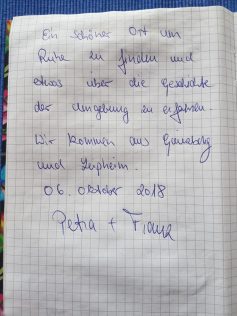 Ein schöner Ort um
Ruhe zu finden und
etwas über die Geschichte
der Umgebung zu erfahren.
Wir kommen aus Günzburg
und Leipheim.
06. Oktober 2018
Petra + Franz